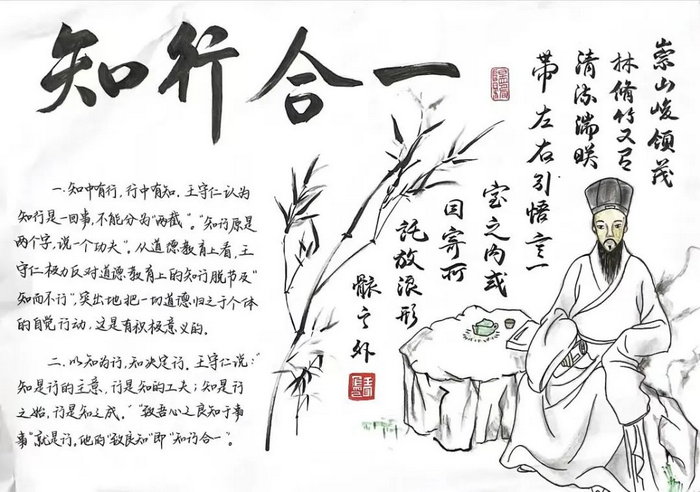 知行合一
一.知中有行,行中有知.王守仁认为
知行是一回事,不能分为"两截"。"知行原是
两个字,说一个功夫"。从道德教育上看,王
守仁极力反对道德教育上的知行脱节及"
知而不行",突出地把一切道德归之于个体
的自觉行动,这是有积极意义的.
二.以知为行,知决定行.王守仁说:"
知是行的主意,行是知的工夫;知是行
之始,行是知之成.""致吾心之良知于事
事"就是行。他的"致良知"即"知行合一"。
崇山峻领茂
林脩竹又有
清流湍暎
带左右引悟言一
室之内或
因寄所
託放浪形
骸之外